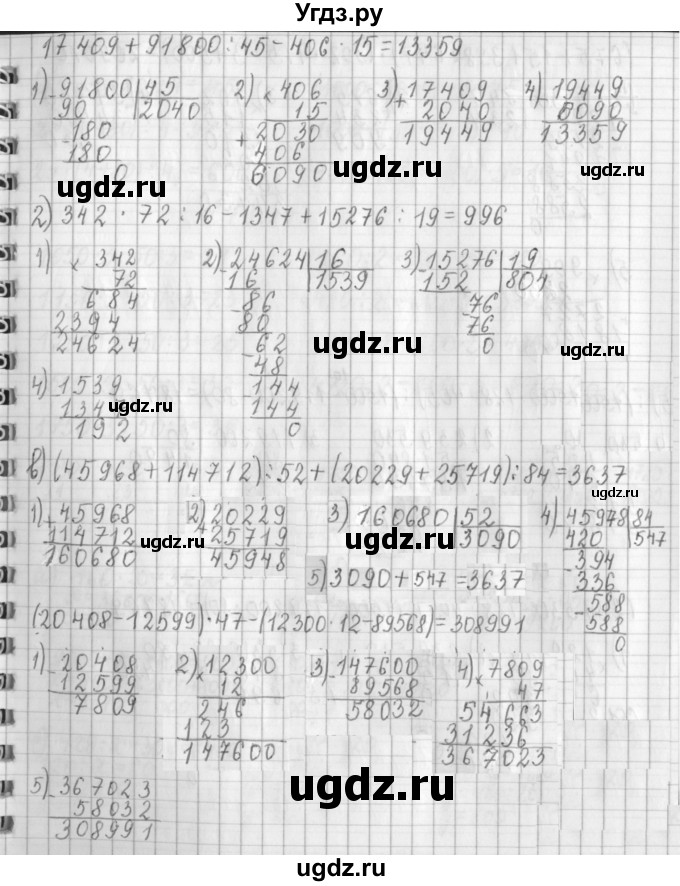 Угдз.ру
17 409 + 91800 : 45 - 406 · 15 = 13359
1) 91800 | 45   2) × 406   3) 17409   4) 19449
90 | 2040   15   + 2040   6090
180   2030   19449   13359
180   + 406
0   6090
ugdz.ru ugdz.ru ugdz.ru
2) 342 · 72 : 16 - 1347 + 15276 : 19 = 996
1) × 342   2) 24624 | 16   3) 15276 | 19
72   16 | 1539   152 | 804
684   86   76
2394   80   76
24624   62   0
ugdz.ru ugdz.ru
48
4) 1539   144
1347   144
192   0
ugdz.ru ugdz.ru
в) (45968 + 114712) : 52 + (20229 + 25719) : 84 = 3637
ugdz.ru
1) + 45968   2) 20229   3) 160680 | 52   4) 45978 | 84
114712   + 25719   3090   420 | 547
160680   45948   394
ugdz.ru ugdz.ru
5) 3090 + 547 = 3637   336
588
588
0
(20 408 - 12599) · 47 - (12300 · 12 - 89568) = 308991
1) 20408   2) × 12300   3) 147600   4) × 7809
12599   12   89568   47
7809   246   58032   54 663
123   31236
147600   367023
ugdz.ru ugdz.ru
5) 367023
58032
308991
ugdz.ru ugdz.ru
ugdz.ru